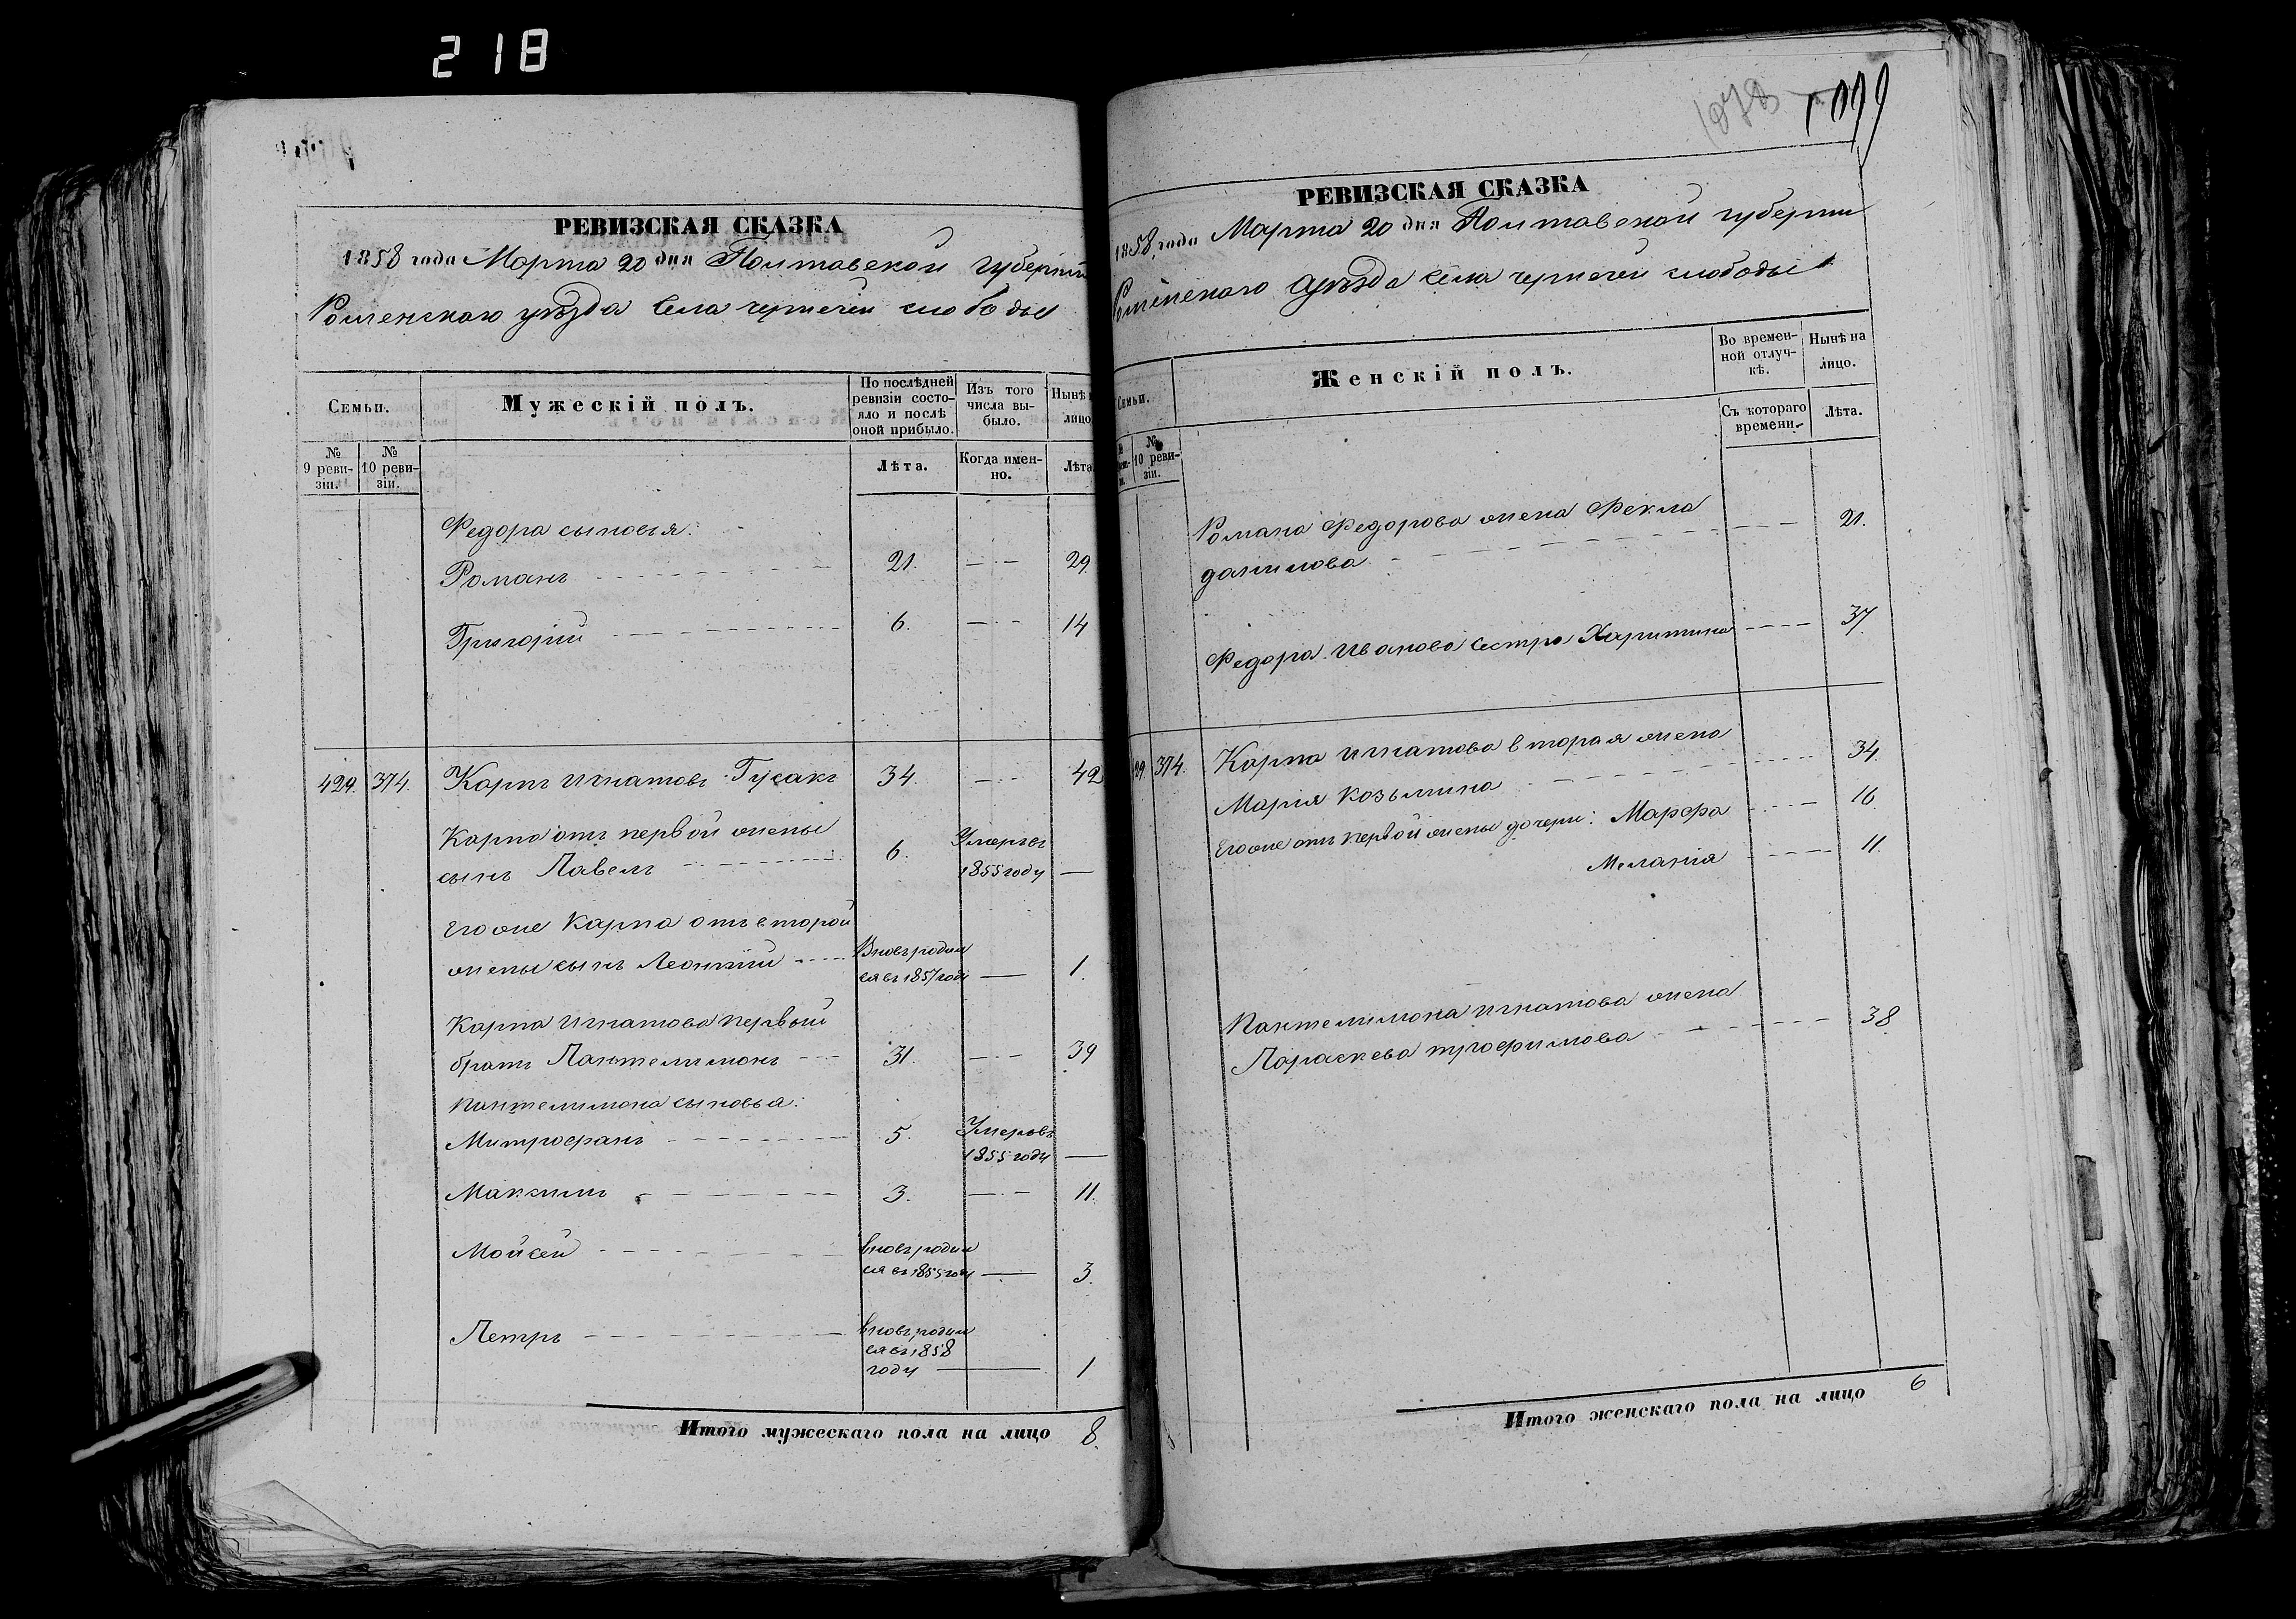 218
РЕВИЗСКАЯ СКАЗКА
1858 года Марта 20 дня Полтавской губерніи
Роменскаго уѣзда Села чернечей слободы
Семьи.
Мужескій полъ.
По послѣдней ревизіи состояло и послѣ оной прибыло.
Изъ того числа выбыло.
Нынѣ
лицо
№ 9 ревизіи.
№ 10 ревизіи.
Лѣта.
Когда именно.
Лѣта
Федора сыновья:
Романъ 21. 29.
Григорій 6. 14
429. 374. Карпъ Игнатовъ Гусакъ 34. 42
Карпа отъ первой жены
сынъ Павелъ 6. Умеръ въ 1855 году
Егоже Карпа отъ второй
жены сынъ Леонтій Вновь родился въ 1857 году 1.
Карпа Игнатова первый
братъ Пантелимонъ 31. 39
Пантелимона сыновья:
Митрофанъ 5. Умеръ въ 1855 году
Максимъ 3. 11.
Мойсей вновь родился въ 1855 году 3.
Петръ вновь родился въ 1858 году 1
Итого мужескаго пола на лицо 8.
1078 1099
РЕВИЗСКАЯ СКАЗКА
1858 года Марта 20 дня Полтавской губерніи
Роменскаго Уѣзда Села чернечей слободы
Семьи.
Женскій полъ.
Во временной отлучкѣ.
Нынѣ на лицо.
№ 10 ревизіи.
Съ котораго времени.
Лѣта.
Романа Федорова жена Фекла 21.
данилова
Федора Иванова Сестра Харитина 37
29. 374. Карпа Игнатова вторая жена
Марія Козьмина 34.
Егоже отъ первой жены дочери: Марфа 16.
Меланія 11.
Пантелимона Игнатова жена
Параскева трофимова 38
Итого женскаго пола на лицо 6